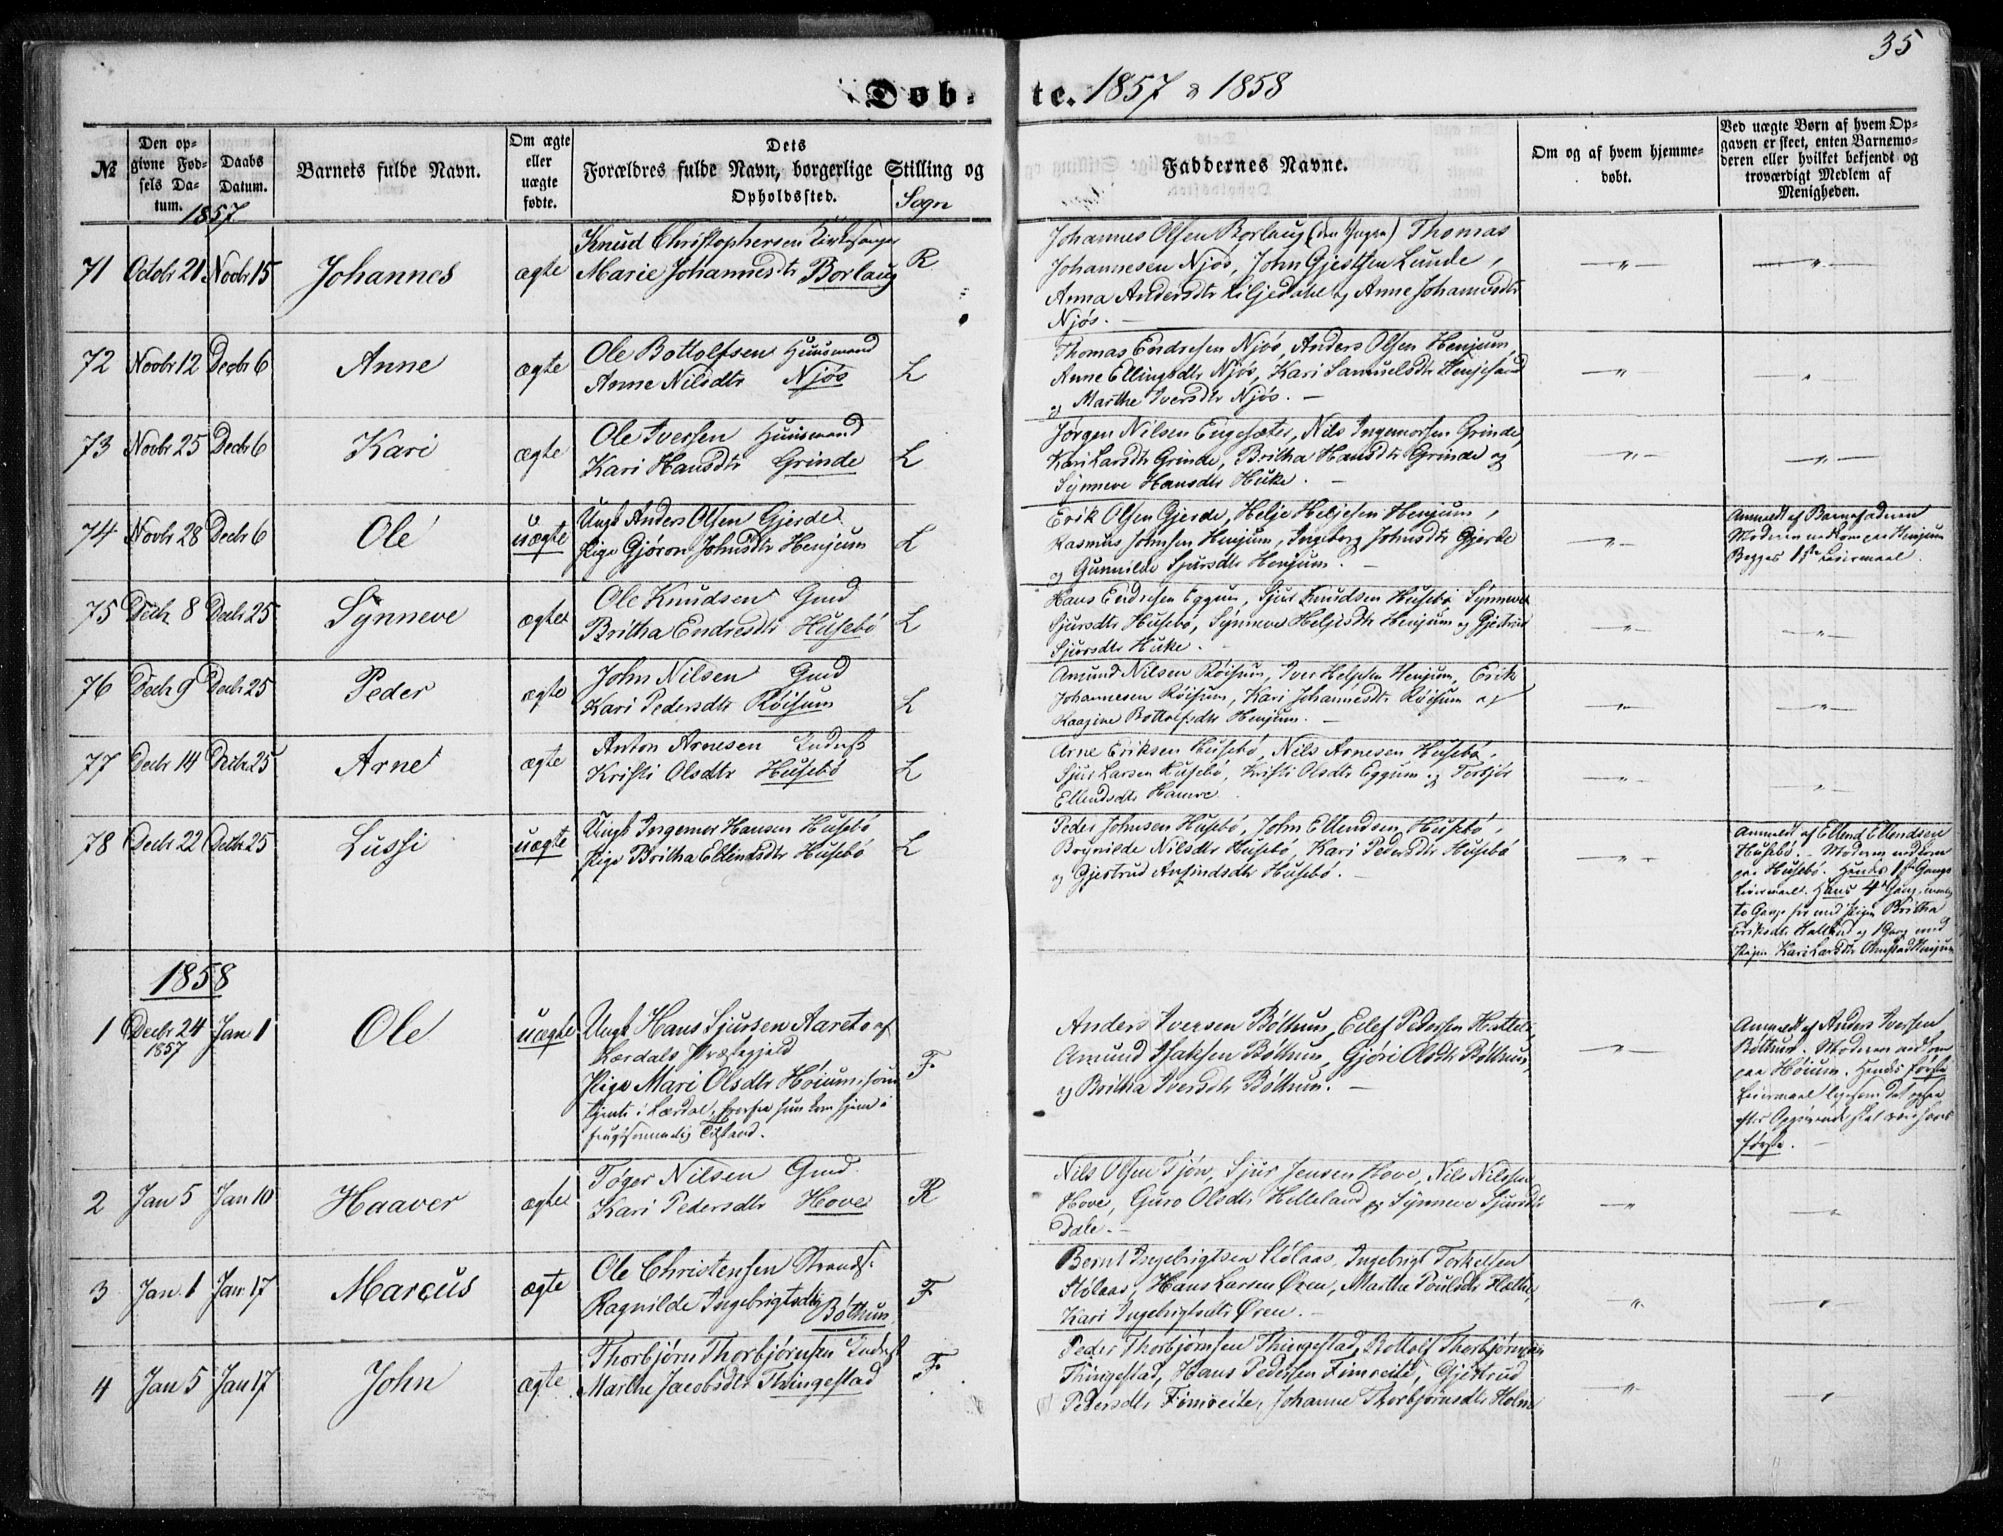 35
Døb- te. 1857 & 1858
№ Den opgivne Fødsels Datum. Daabs Datum. Barnets fulde Navn. Om ægte eller uægte fødte. Dets Forældres fulde Navn, borgerlige Stilling og Opholdssted. Sogn Faddernes Navne. Om og af hvem hjemmedøbt. Ved uægte Børn af hvem Opgaven er skeet, enten Barnemoderen eller hvilket bekjendt og troværdigt Medlem af Menigheden.
1857
71 Octobr 21 Novbr 15 Johannes ægte Knud Christophersen Kirkesanger
Marie Johannesdtr Borlaug R
Johannes Olsen Borlaug (den Yngre) Thomas
Johannesen Njøs, John Gjestsen Lunde,
Anna Andersdtr Liljedahl og Anne Johannesdtr
Njøs. —
72 Novbr 12 Decbr 6 Anne ægte Ole Bottolfsen Huusmand
Anne Nilsdtr Njøs L
Thomas Endresen Njøs, Anders Olsen Henjum,
Anne Ellingsdtr Njøs, Kari Samuelsdtr
og Marthe Iversdtr Njøs. —
73 Novbr 25 Decbr 6 Kari ægte Ole Iversen Huusmand
Kari Hansdtr Grinde L
Jørgen Nilsen Engesæter, Nils Ingemorsen Grinde,
Kari Larsdtr Grinde, Britha Hansdtr Grinde og
Synneve Hansdtr Huke. —
74 Novbr 28 Decbr 6 Ole uægte Ungk Anders Olsen Gjerde
Pige Gjøron Johnsdtr Henjum L
Erik Olsen Gjerde, Helje Heljesen Henjum,
Rasmus Johnsen Henjum, Ingeborg Johnsdtr Gjerde
og Gunnilde Sjursdtr Henjum. —
Anmeldt af Barnefaderen
Moderen nedkom paa Henjum
Begges 1ste Leiermaal.
75 Decbr 8 Decbr 25 Synneve ægte Ole Knudsen Gmd
Britha Endresdtr Husebø L
Hans Endresen Eggum, Sjur Knudsen Husebø Synneve
Sjursdtr Husebø, Synneve Heljesdtr Henjum og Gjertrud
Sjursdtr Huke. —
76 Decbr 9 Decbr 25 Peder ægte John Nilsen Gmd
Kari Pedersdtr Røisum L
Amund Nilsen Røisum, Iver Heljesen Henjum, Erik
Johannesen Røisum, Kari Johannesdtr Røisum og
Bottolfsdtr Henjum. —
77 Decbr 14 Decbr 25 Arne ægte Anton Arnesen Inderst
Kristi Olsdtr Husebø L
Arne Eriksen Husebø, Nils Arnesen Husebø,
Sjur Larsen Husebø, Kristi Olsdtr Eggum og Torbjør
Ellendsdtr Hamre
78 Decbr 22 Decbr 25 Lussi uægte Ungk Ingemor Hansen Husebø
Pige Britha Ellendsdtr Husebø L
Peder Johnsen Husebø, John Ellendsen Husebø,
Brynilde Nilsdtr Husebø, Kari Pedersdtr Husebø
og Gjertrud Anfindsdtr Husebø. —
Anmeldt af Ellend Ellendsen
Husebø. — Moderen nedkom
paa Husebø. Hendes 1ste Gangs
Leiermaal. Hans 4de Gang,
to Gange før med Pigen Britha
Eriksdtr og 1 Gang med
Pigen Kari Larsdtr Henjum
1858
1 Decbr 24 1857 Jan 1 Ole uægte Ungk Hans Sjursen Aaretø af
Lærdals Præstegjeld
Pige Mari Olsdtr Høium, som
tjente i Lærdal, hvorfra hun kom hjem i
frugtsommelig Tilstand. F
Anders Iversen Bøthun, Eilef Pedersen
Amund Isaksen Bøthun, Gjøri Olsdtr Bøthun,
og Britha Iversdtr Bøthun. —
Anmeldt af Anders Iversen
Bøthun. Moderen nedkom
paa Høium. Hendes første
Leiermaal ligesom det ogsaa
efter Opgivende skal være hans
første. —
2 Jan 5 Jan 10 Haaver ægte Tøger Nilsen Gmd.
Kari Pedersdtr Hove R
Nils Olsen Tjøn, Sjur Jensen Hove, Nils Nilssen
Hove, Guro Olsdtr Helleland og Synneve Sjursdtr
Dale. —
3 Jan. 1 Jan 17 Marcus ægte Ole Christensen Strands.
Ragnilde Ingebrigtsdtr Bøthun F
Bernt Ingebrigtsen Stølaas, Ingebrigt Torkelsen
Stølaas, Hans Larsen Øren, Marthe Poulsdtr
Kari Ingebrigtsdtr Øren. —
4 Jan 5 Jan 17 John ægte Thorbjørn Thorbjørnsen Inderst
Marthe Jacobsdtr Thingestad F
Peder Thorbjørnsen Thingestad, Bottolf Thorbjørnsen
Thingestad, Hans Pedersen Fimreite, Gjertrud
Pedersdtr Fimreite, Johanne Thorbjørnsdtr Holm